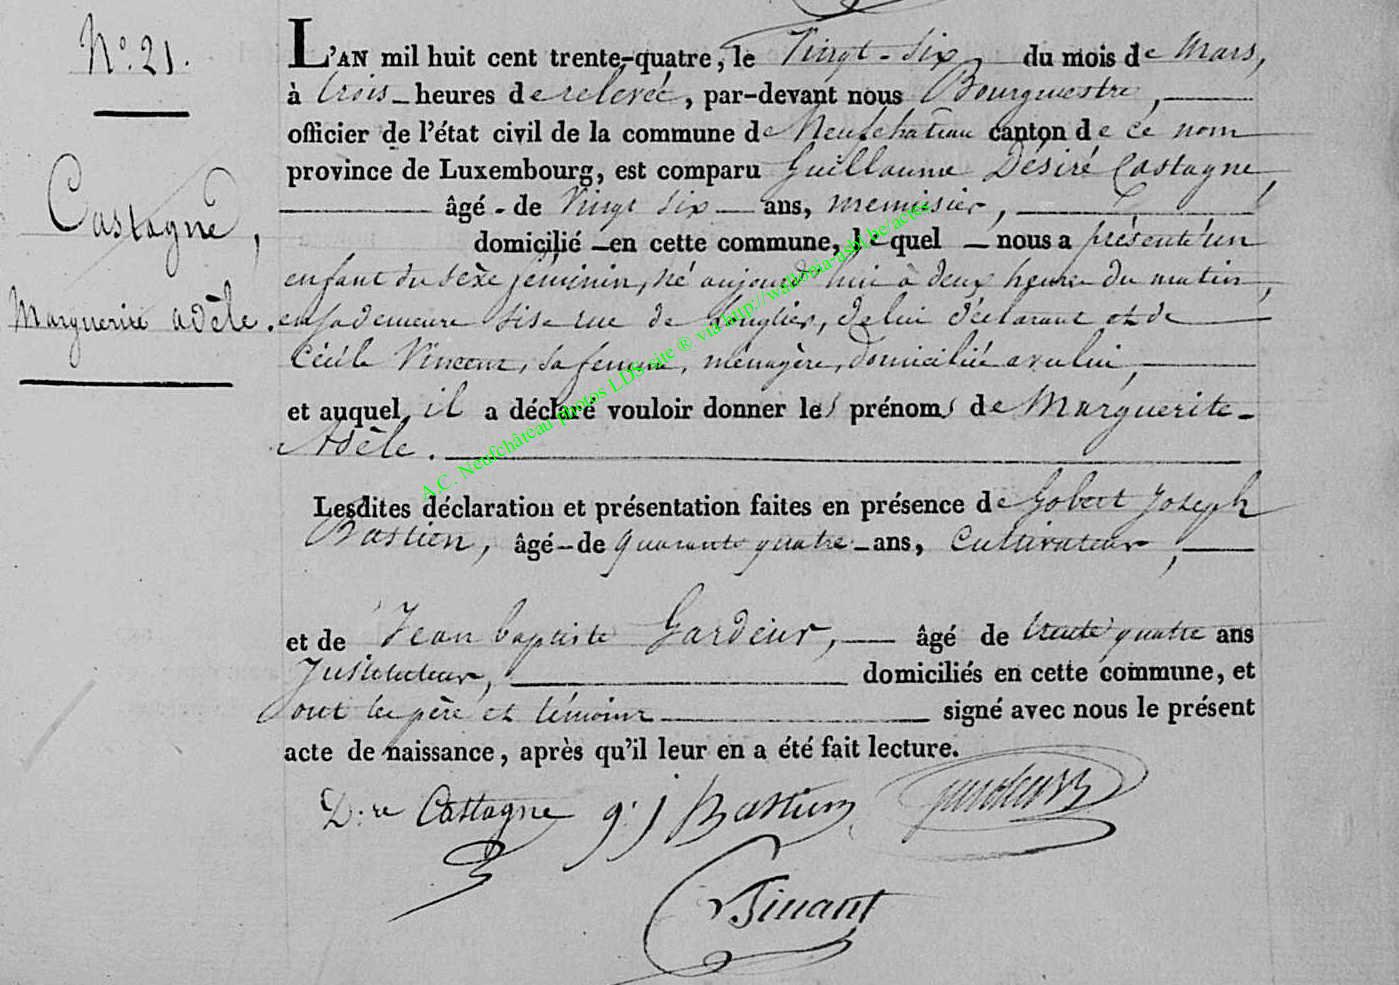 N.° 21.
Castagne,
Marguerite adèle.
L'AN mil huit cent trente-quatre, le Vingt-six du mois de Mars,
à trois heures de relevée, par-devant nous Bourgmestre,
officier de l'état civil de la commune de Neufchateau canton de ce nom
province de Luxembourg, est comparu Guillaume Désiré Castagne,
âgé de Vingt six ans, menuisier,
domicilié en cette commune, lequel nous a présenté un
enfant du sexe féminin, né aujourd'hui à deux heures du matin,
en sa demeure sise rue de Longlier, de lui déclarant et de
Cécile Vincent, sa femme, ménagère, domiciliée avec lui,
et auquel il a déclaré vouloir donner les prénoms de Marguerite-
Adèle.
Lesdites déclaration et présentation faites en présence de Gobert Joseph
Bastien, âgé de quarante quatre ans, Cultivateur,
et de Jean baptiste Gardeur, âgé de trente quatre ans
Instituteur, domiciliés en cette commune, et
ont les père et témoins signé avec nous le présent
acte de naissance, après qu'il leur en a été fait lecture.
D.ré Castagne g. j Bastien
Finant
A.C. Neufchâteau photos LDS site ® via http://wallonia-asbl.be/actes